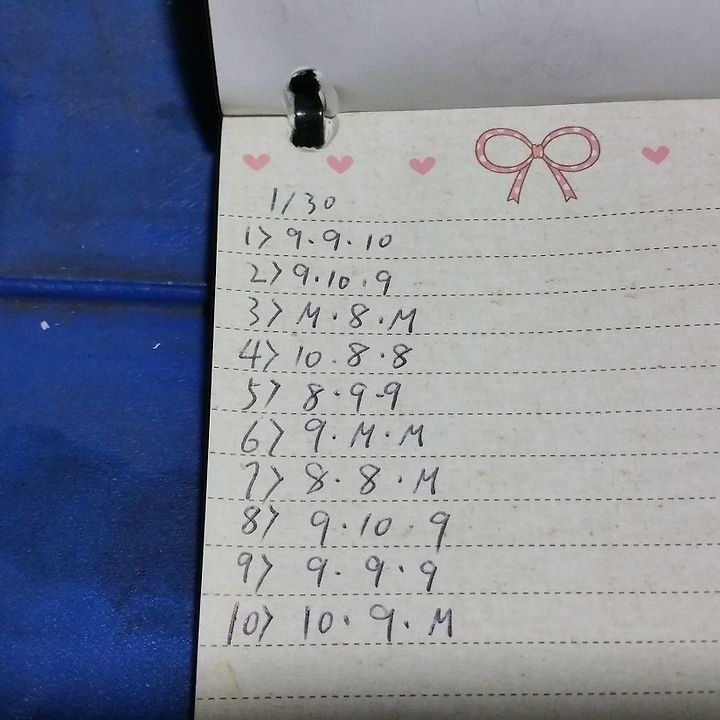 1/30
1> 9.9.10
2> 9.10.9
3> M.8.M
4> 10.8.8
5> 8.9-9
6> 9.M.M
7> 8.8.M
8> 9.10.9
9> 9.9.9
10> 10.9.M